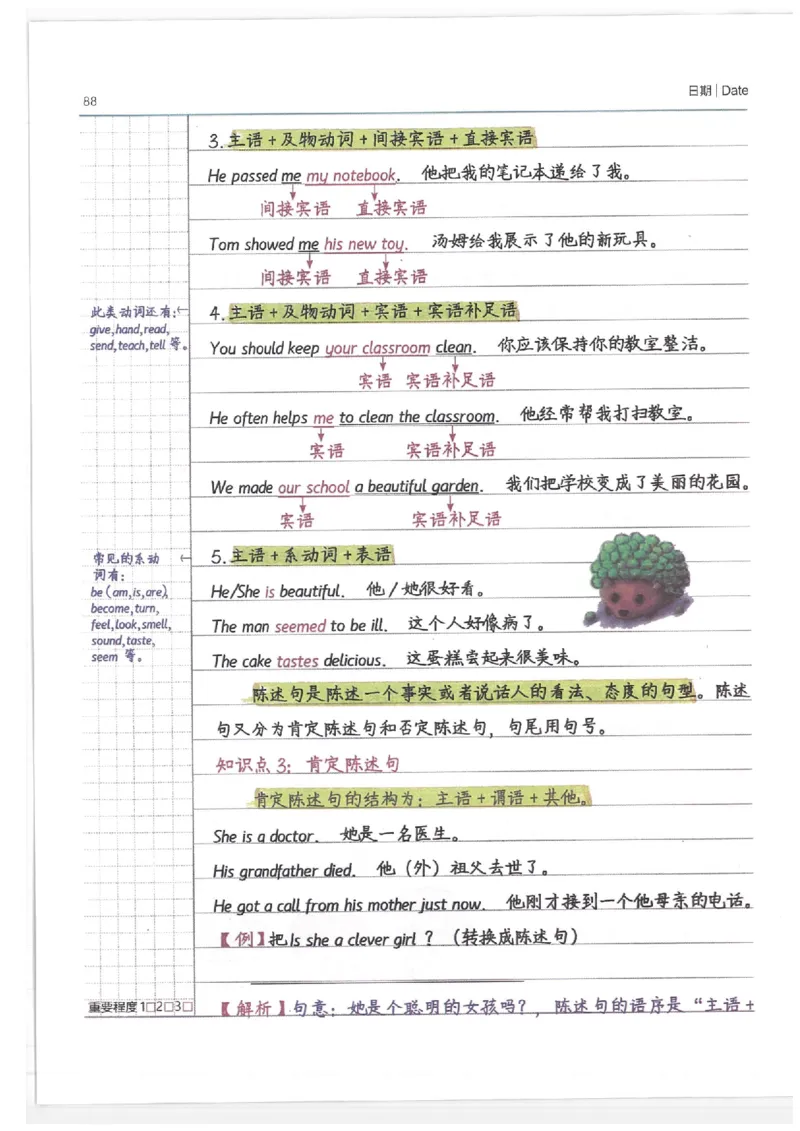 88
日期 | Date
3.主语+及物动词+间接宾语+直接宾语
He passed me my notebook. 他把我的笔记本递给了我。
间接宾语 直接宾语
Tom showed me his new toy. 汤姆给我展示了他的新玩具。
间接宾语 直接宾语
此类动词还有:
give,hand,read,
send,teach,tell 等。
4.主语+及物动词+宾语+宾语补足语
You should keep your classroom clean. 你应该保持你的教室整洁。
宾语 宾语补足语
He often helps me to clean the classroom. 他经常帮我打扫教室。
宾语 宾语补足语
We made our school a beautiful garden. 我们把学校变成了美丽的花园。
宾语 宾语补足语
常见的系动
词有:
be(am,is,are),
become,turn,
feel,look,smell,
sound,taste,
seem 等。
5.主语+系动词+表语
He/She is beautiful. 他/她很好看。
The man seemed to be ill. 这个人好像病了。
The cake tastes delicious. 这蛋糕尝起来很美味。
陈述句是陈述一个事实或者说话人的看法、态度的句型。陈述
句又分为肯定陈述句和否定陈述句,句尾用句号。
知识点3:肯定陈述句
肯定陈述句的结构为:主语+谓语+其他。
She is a doctor. 她是一名医生。
His grandfather died. 他(外)祖父去世了。
He got a call from his mother just now. 他刚才接到一个他母亲的电话。
【例】把Is she a clever girl ?(转换成陈述句)
重要程度 1□2□3□
【解析】句意:她是个聪明的女孩吗?,陈述句的语序是“主语+